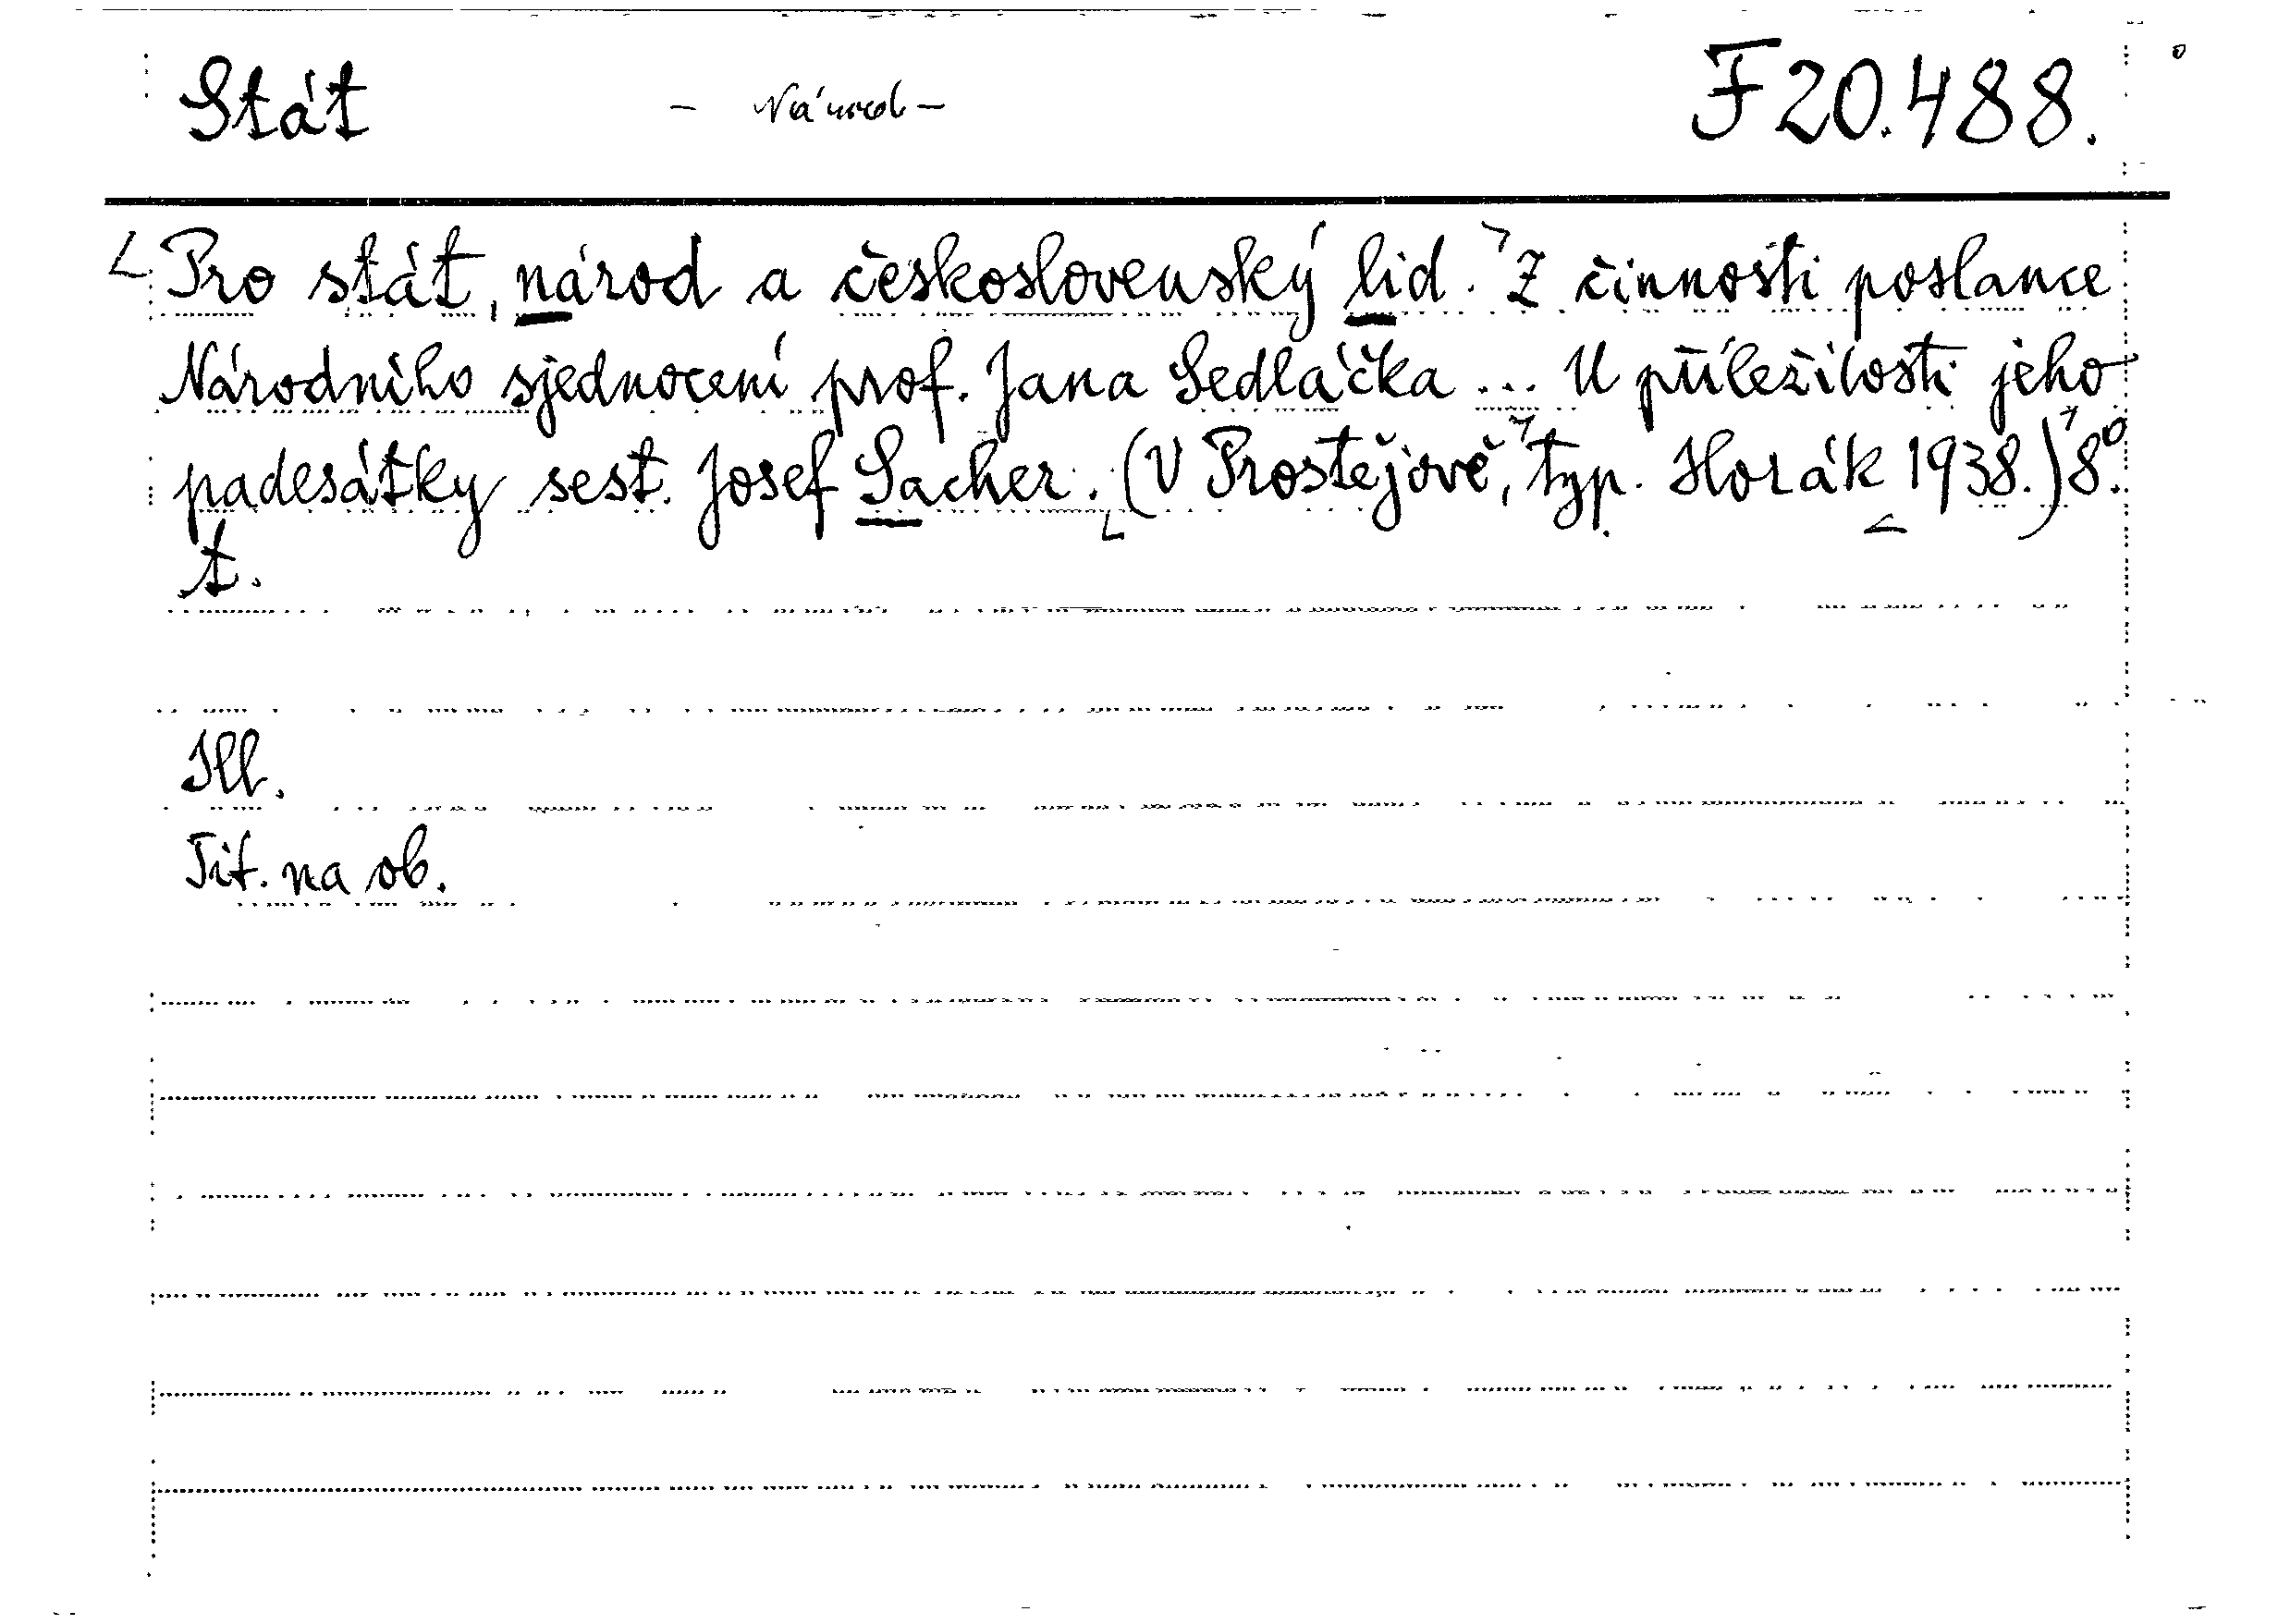 Stát - Národ - F 20.488.
Pro stát, národ a československý lid. Z činnosti poslance
Národního sjednocení prof. Jana Sedláčka ... U příležitosti jeho
padesátky sest. Josef Sacher. (V Prostějově, typ. Horák 1938.) 8°.
t.
Ill.
Tit. na ob.